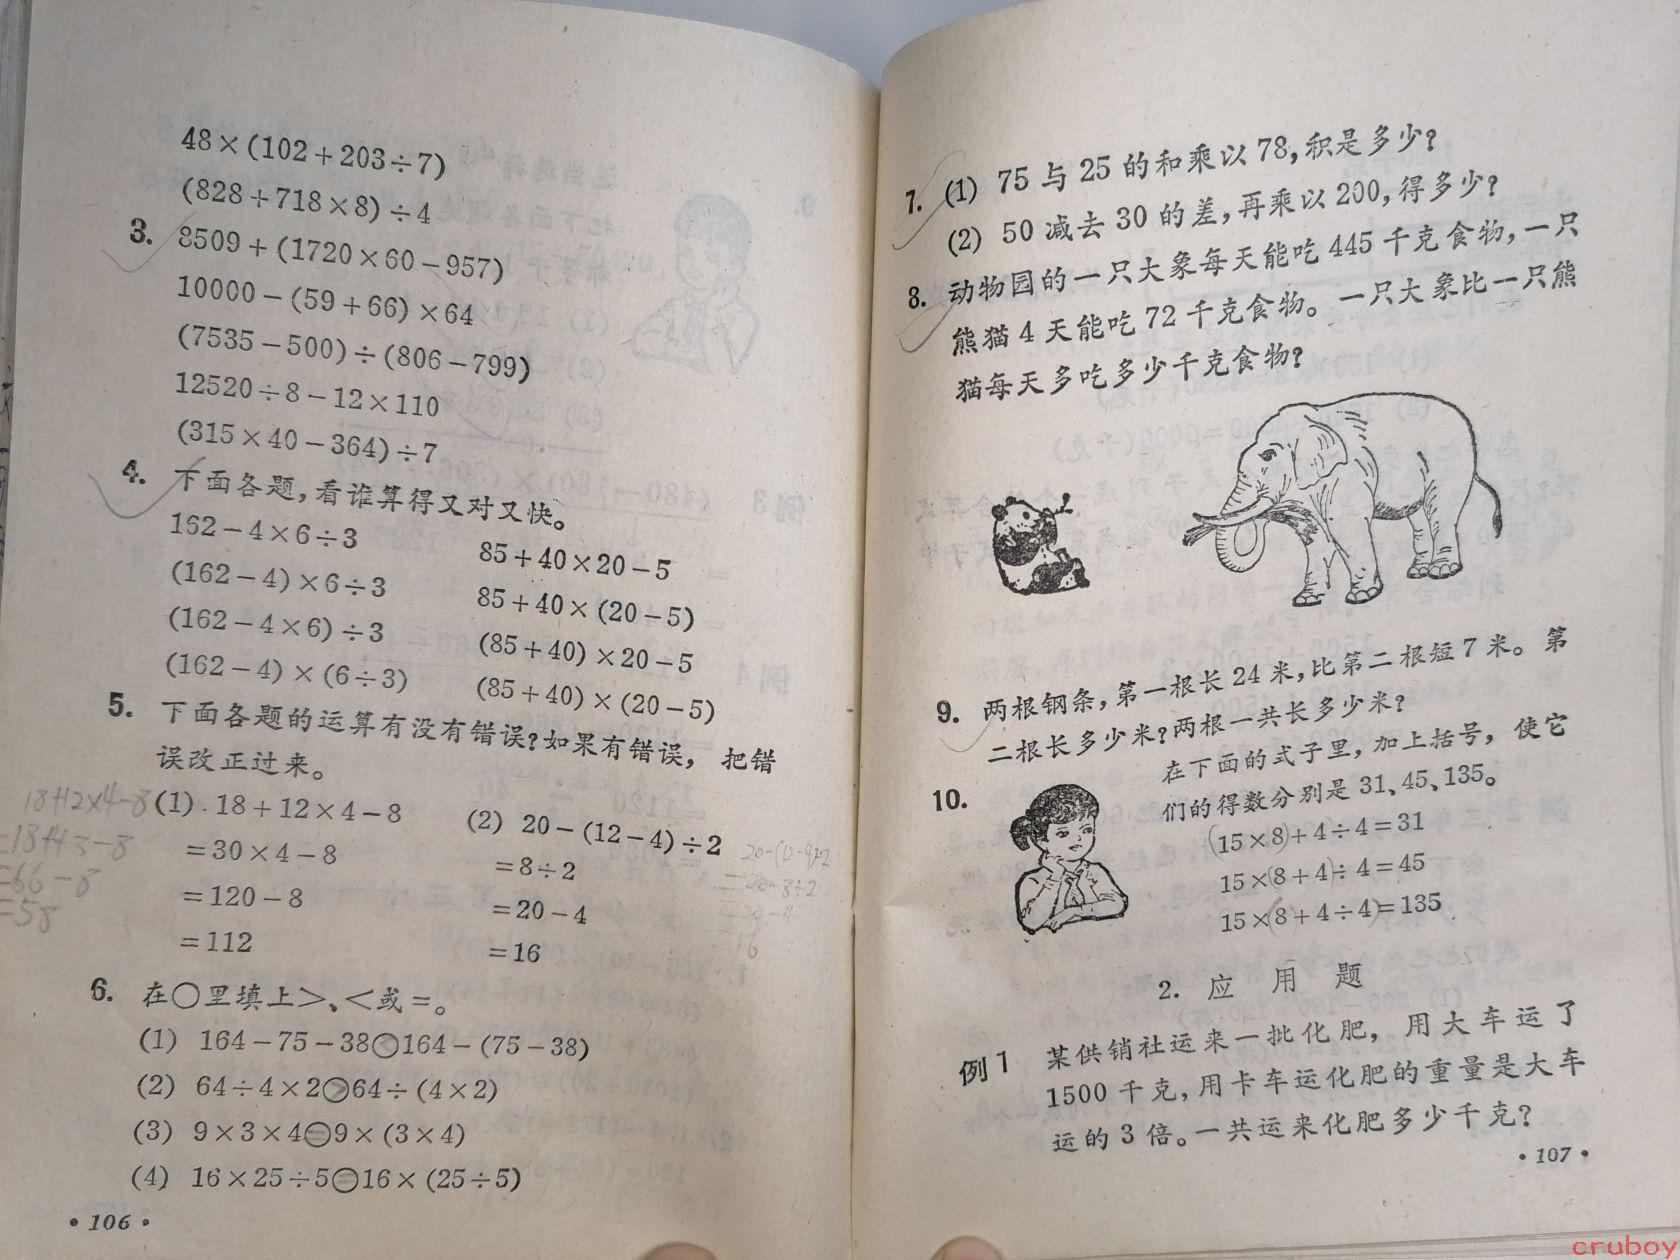 48×(102+203÷7)
(828+718×8)÷4
3. 8509+(1720×60-957)
10000-(59+66)×64
(7535-500)÷(806-799)
12520÷8-12×110
(315×40-364)÷7
4. 下面各题，看谁算得又对又快。
162-4×6÷3 85+40×20-5
(162-4)×6÷3 85+40×(20-5)
(162-4×6)÷3 (85+40)×20-5
(162-4)×(6÷3) (85+40)×(20-5)
5. 下面各题的运算有没有错误？如果有错误，把错
误改正过来。
(1) 18+12×4-8 (2) 20-(12-4)÷2
=30×4-8 =8÷2
=120-8 =20-4
=112 =16
18+12×4-8
=66-8
=58
20-(12-4)÷2
=20-8÷2
=20-4
=16
6. 在○里填上>、<或=。
(1) 164-75-38○164-(75-38)
(2) 64÷4×2>64÷(4×2)
(3) 9×3×4=9×(3×4)
(4) 16×25÷5=16×(25÷5)
·106·
7. (1) 75与25的和乘以78，积是多少？
(2) 50减去30的差，再乘以200，得多少？
8. 动物园的一只大象每天能吃445千克食物，一只
熊猫4天能吃72千克食物。一只大象比一只熊
猫每天多吃多少千克食物？
9. 两根钢条，第一根长24米，比第二根短7米。第
二根长多少米？两根一共长多少米？
10. 在下面的式子里，加上括号，使它
们的得数分别是31、45、135。
(15×8)+4÷4=31
15×(8+4)÷4=45
15×(8+4÷4)=135
2. 应用题
例1 某供销社运来一批化肥，用大车运了
1500千克，用卡车运化肥的重量是大车
运的3倍。一共运来化肥多少千克？
·107·
cruboy